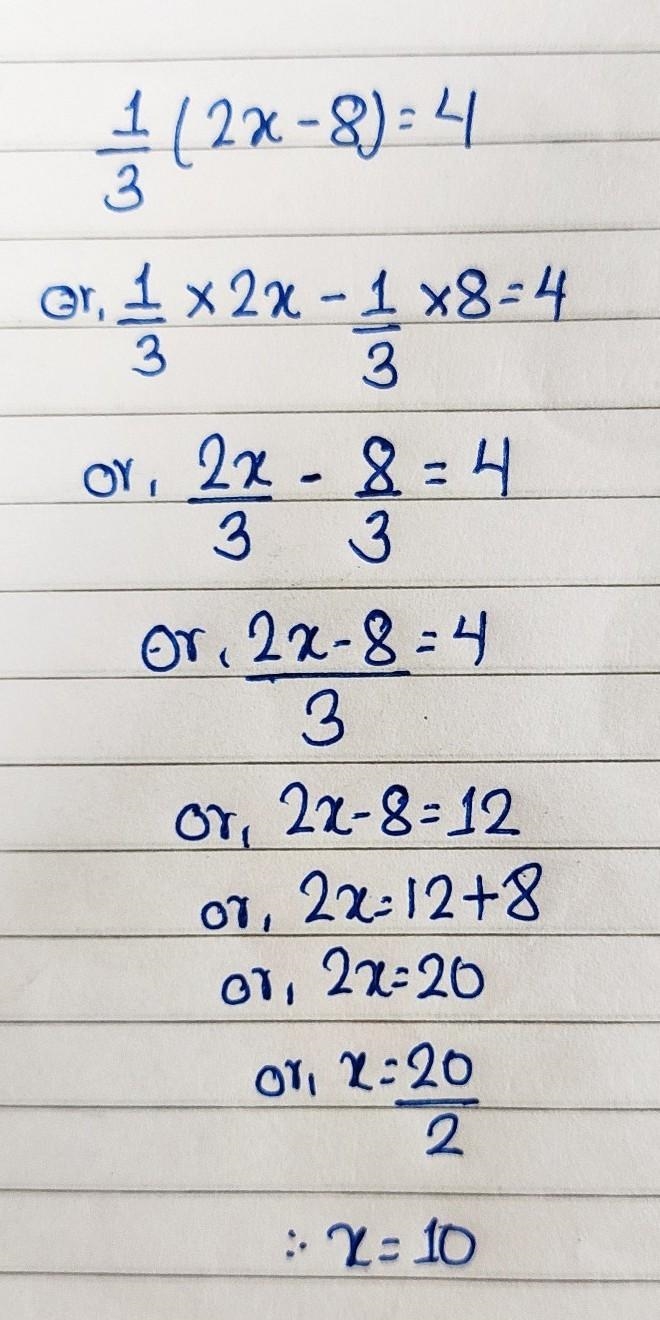 1/3 (2x - 8) = 4
or, 1/3 × 2x - 1/3 × 8 = 4
or, 2x/3 - 8/3 = 4
or, (2x - 8)/3 = 4
or, 2x - 8 = 12
or, 2x = 12 + 8
or, 2x = 20
or, x = 20/2
∴ x = 10